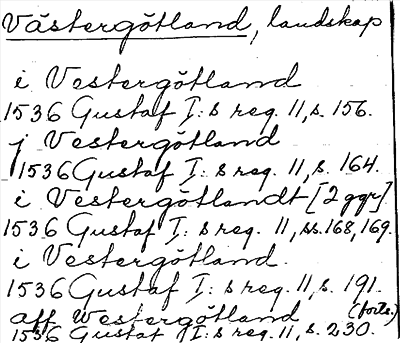 Västergötland, landskap
i Vestergötland
1536 Gustaf I:s reg. 11, s. 156.
j Vestergötland
1536 Gustaf I:s reg. 11, s. 164.
i Vestergötlandt [2 ggr]
1536 Gustaf I:s reg. 11, ss. 168, 169.
i Vestergötland.
1536 Gustaf I:s reg. 11, s. 191.
aff Westergötland (forts.)
1536 Gustaf I:s reg. 11, s. 230.